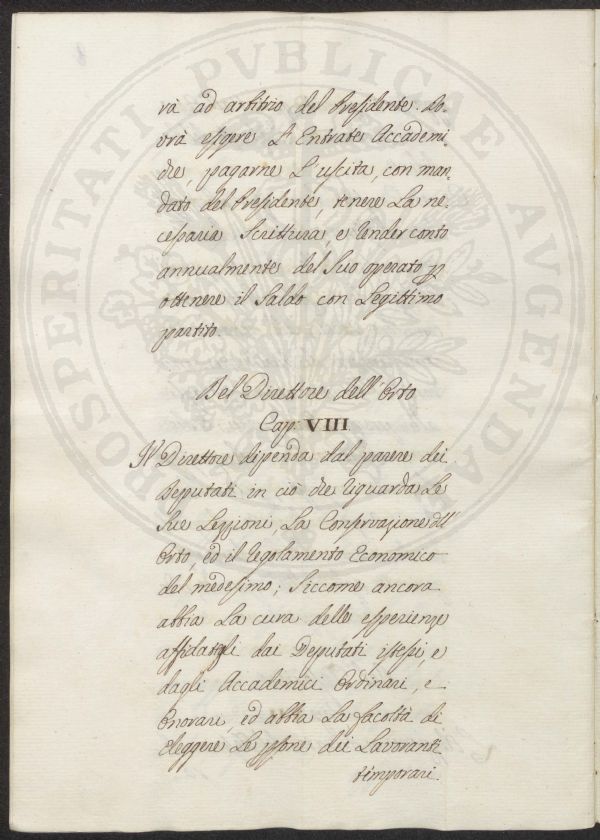 rà ad arbitrio del Presidente. Do-
vrà esigere L'Entrate Accademi-
che, pagarne L'uscita, con man-
dato del Presidente, tenere La ne-
cessaria Scrittura, e render conto
annualmente del Suo operato p
ottenere il Saldo con Legittimo
partito.
Del Direttore dell'Orto
Cap. VIII
Il Direttore dipenda dal parere dei
Deputati in ciò che riguarda Le
Sue Lezzioni, La Conservazione dll'
Orto, ed il regolamento Economico
del medesimo; Siccome ancora
abbia La cura delle esperienze
affidategli dai Deputati istessi, e
dagli Accademici Ordinari, e
Onorari, ed abbia La facoltà di
eleggere Le psone dei Lavoranti
temporari.
PROSPERITATI PVBLICAE AVGENDAE